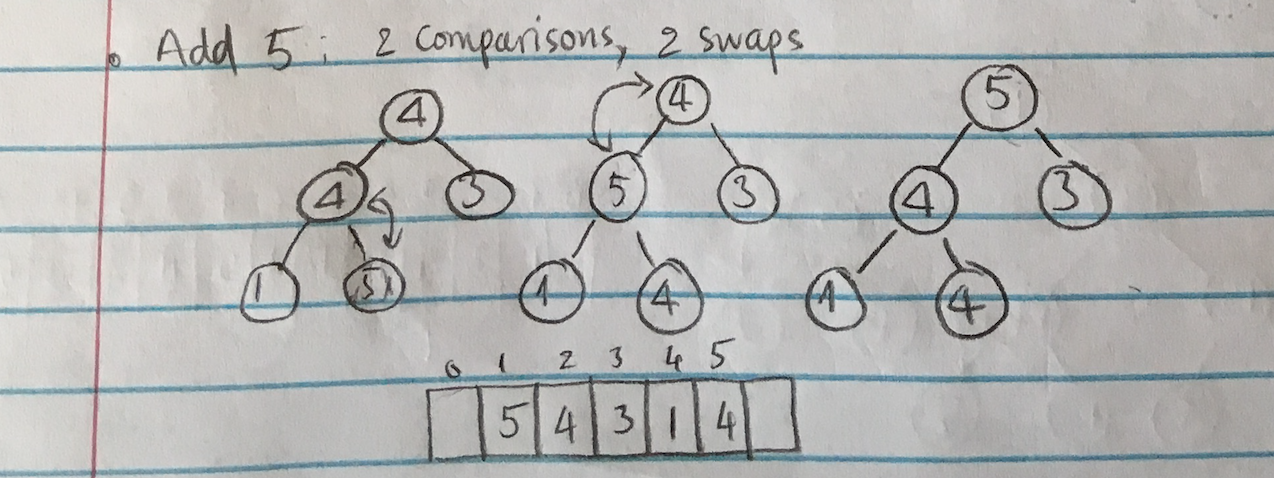 • Add 5: 2 comparisons, 2 swaps
4 4 5
4 3 5 3 4 3
1 5 1 4 1 4
0 1 2 3 4 5
5 4 3 1 4